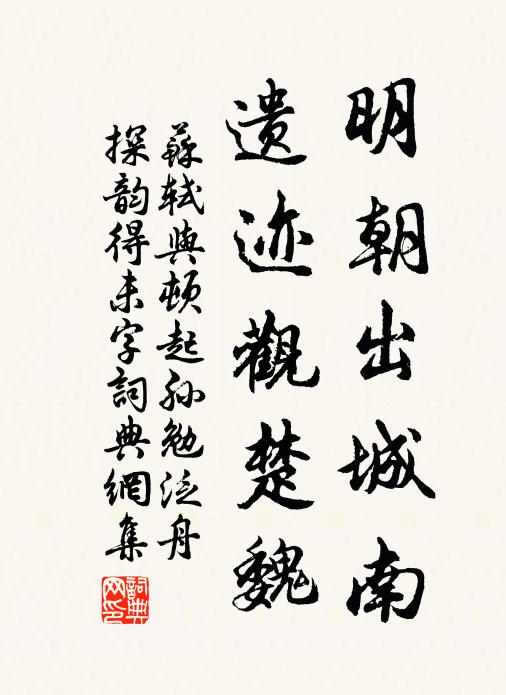 明朝出城南
遗迹觀楚魏
蘇軾與頓起孫勉泛舟
探韵得未字詞典網集
詞典網印